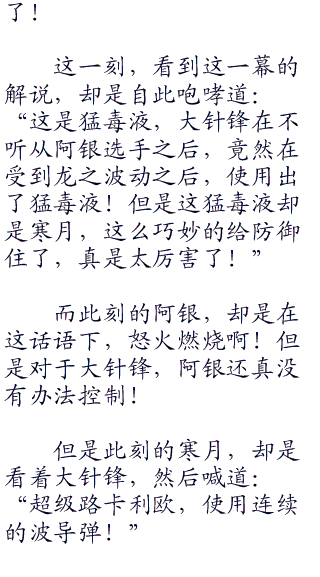 了！
这一刻，看到这一幕的
解说，却是自此咆哮道：
“这是猛毒液，大针锋在不
听从阿银选手之后，竟然在
受到龙之波动之后，使用出
了猛毒液！但是这猛毒液却
是寒月，这么巧妙的给防御
住了，真是太厉害了！”
而此刻的阿银，却是在
这话语下，怒火燃烧啊！但
是对于大针锋，阿银还真没
有办法控制！
但是此刻的寒月，却是
看着大针锋，然后喊道：
“超级路卡利欧，使用连续
的波导弹！”